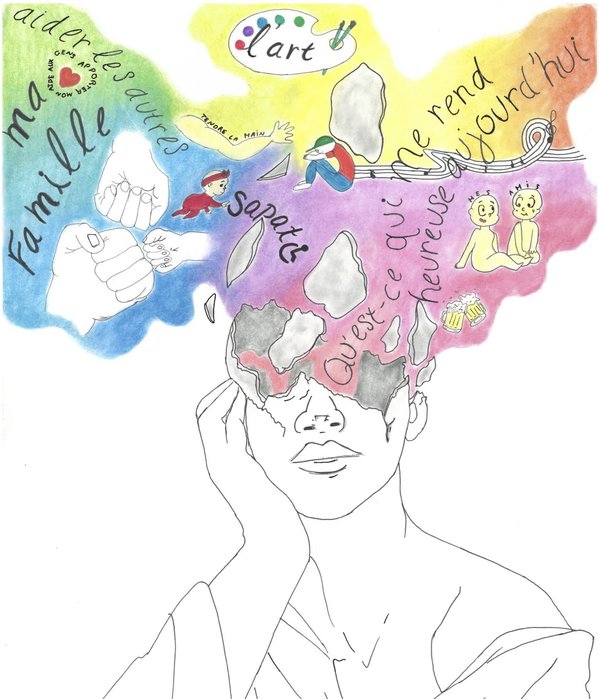 l'art
aider les autres
GENS APPORTER MON AIDE AUX
ma
Famille
TENDRE LA MAIN
sapatic
Qu'est-ce qui
me rend
heureuse aujourd'hui
MES AMIS